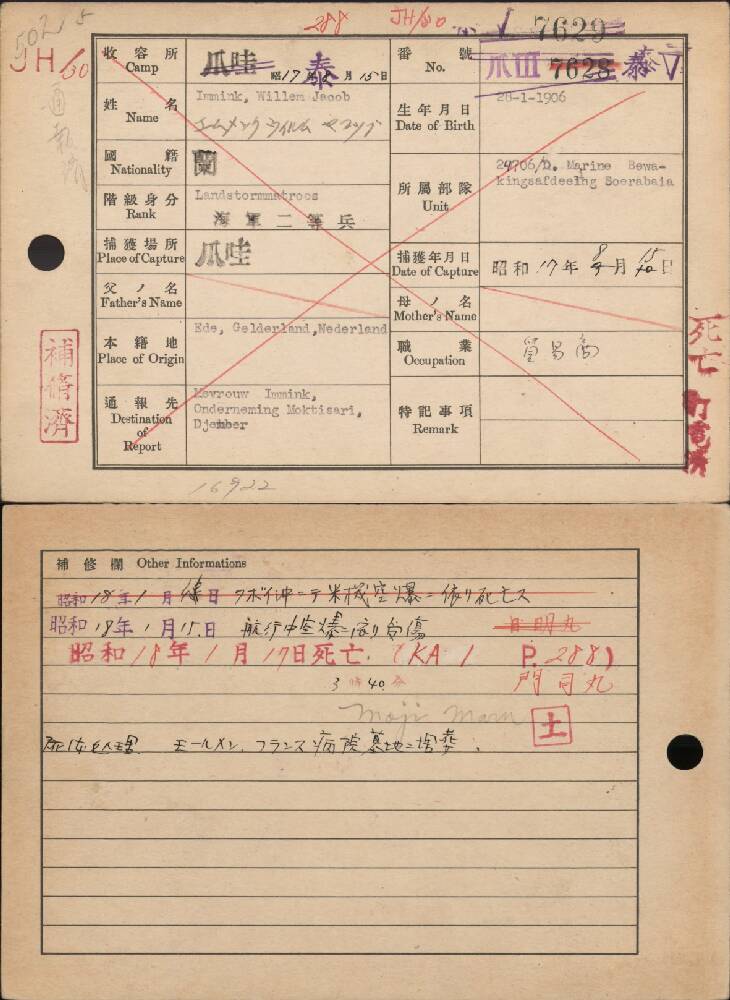 502 5
288 JH/30 7629
JH/30
収容所 Camp 爪哇 泰 昭17年8月15日
番號 No. 爪III 7628 泰V
姓名 Name Immink, Willem Jacob
エムメンク ウイルム ヤコップ
生年月日 Date of Birth 28-1-1906
國籍 Nationality 蘭
階級身分 Rank Landstormmatroos
海軍二等兵
所属部隊 Unit 24706/D. Marine Bewa-
kingsafdeelng Soerabaia
捕獲場所 Place of Capture 爪哇
捕獲年月日 Date of Capture 昭和17年8月15日
父ノ名 Father's Name
母ノ名 Mother's Name
本籍地 Place of Origin Ede, Gelderland,Nederland
職業 Occupation
通報先 Destination of Report Mevrouw Immink,
Onderneming Moktisari,
Djember
特記事項 Remark
補脩濟
死亡
16922
補修欄 Other Informations
昭和18年1月 日 タボイ沖ニテ米機空爆ニ依リ死亡ス
昭和18年1月15日 航行中空爆ニ依リ負傷 日明丸
昭和18年1月17日死亡 (KA1 P.288)
3時40分 門司丸
Moji Maru 土
死体処理 モールメン、フランス病院墓地ニ埋葬.